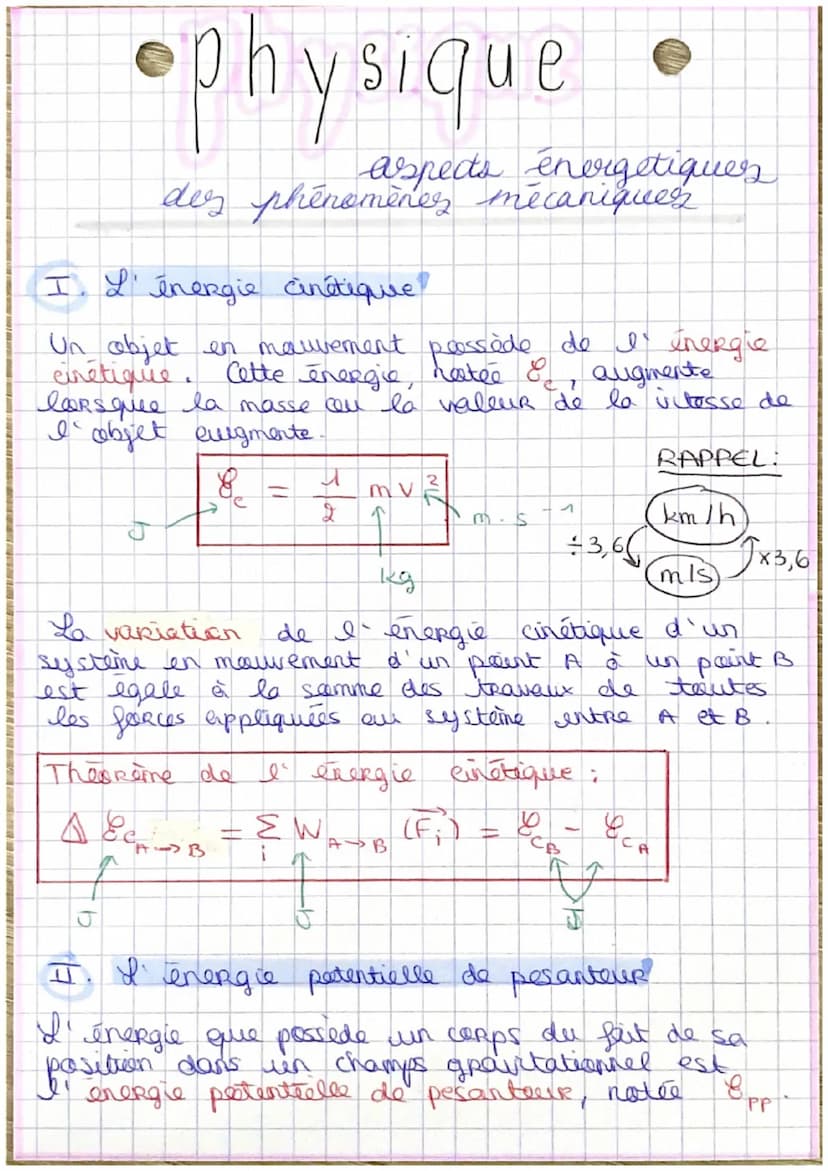 physique
aspects énergétiques
des phénomènes mécaniques
I. L'énergie cinétique
Un objet en mouvement possède de l'énergie
cinétique. Cette énergie, notée Ec, augmente
lorsque la masse ou la valeur de la vitesse de
l'objet augmente.
RAPPEL:
Ec = 1/2 m v²
J
kg
m.s⁻¹
km/h
÷3,6
x3,6
m/s
La variation de l'énergie cinétique d'un
système en mouvement d'un point A à un point B
est égale à la somme des travaux de toutes
les forces appliquées au système entre A et B.
Théorème de l'énergie cinétique :
Δ Ec A→B = Σi W A→B (F⃗i) = Ec B - Ec A
J J J
II. L'énergie potentielle de pesanteur
L'énergie que possède un corps du fait de sa
position dans un champs gravitationnel est
l'énergie potentielle de pesanteur, notée Epp.